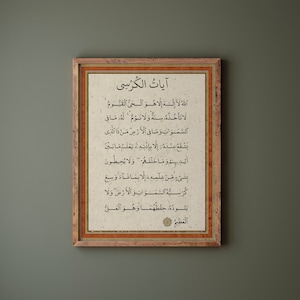 آيات الكرسي
الله لا إله إلا هو الحي القيوم
لا تأخذه سنة ولا نوم له ما في
السموات وما في الأرض من ذا الذي
يشفع عنده إلا بإذنه يعلم ما بين
أيديهم وما خلفهم ولا يحيطون
بشيء من علمه إلا بما شاء وسع
كرسيه السموات والأرض ولا
يئوده حفظهما وهو العلي
العظيم